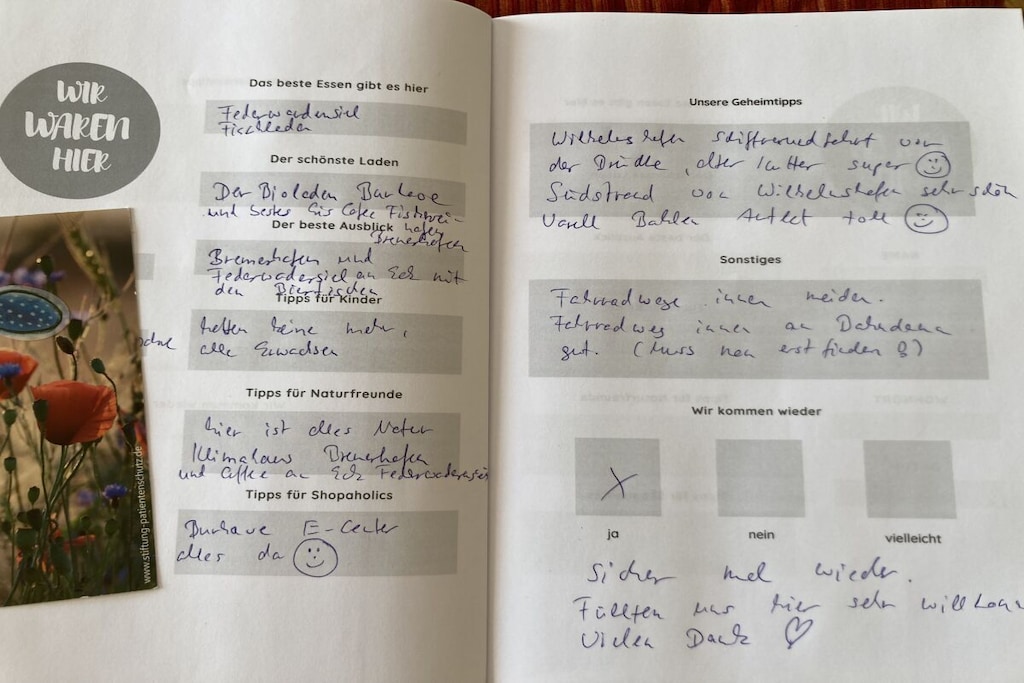 WIR
WAREN
HIER
www.stiftung-patientenschutz.de
Das beste Essen gibt es hier
Federwardensiel
Fischladen
Der schönste Laden
Der Bioladen Burhave
und bestes Eis Cafe Fischerei-
hafen
Bremerhafen
Der beste Ausblick
Bremerhafen und
Federwadersiel an Eck mit
den Bierfischen
Tipps für Kinder
hatten keine mehr,
alle Erwachsen
Tipps für Naturfreunde
hier ist alles Natur
Klimahaus Bremerhafen
und Caffee an Eck Federwadersiel
Tipps für Shopaholics
Burhave E-Center
alles da
Unsere Geheimtipps
Wilhelmshafen Schiffrundfahrt von
der Brücke, alter Kutter super
Südstrand von Wilhelmshafen sehr schön
Varell toll
Sonstiges
Fahrradwege innen meiden.
Fahrradweg innen an
gut. (Muss man erst finden)
Wir kommen wieder
X
ja
nein
vielleicht
Sicher mal wieder.
Fühlten uns hier sehr
Vielen Dank